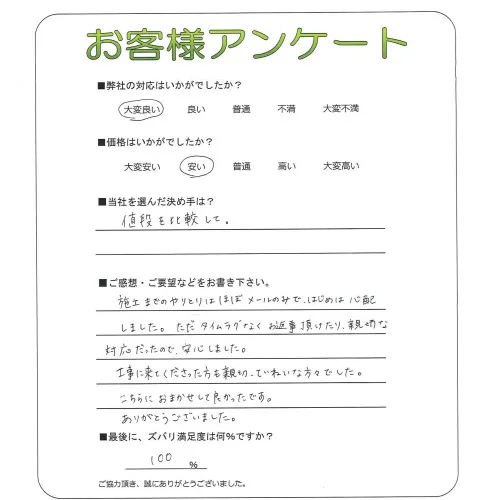 お客様アンケート
■弊社の対応はいかがでしたか？
大変良い 良い 普通 不満 大変不満
■価格はいかがでしたか？
大変安い 安い 普通 高い 大変高い
■当社を選んだ決め手は？
値段を比較して。
■ご感想・ご要望などをお書き下さい。
施工までのやりとりはほぼメールのみで、はじめは心配
しました。ただタイムラグなくお返事頂けたり、親切な
対応だったので、安心しました。
工事に来てくださった方も親切、ていねいな方々でした。
こちらにおまかせして良かったです。
ありがとうございました。
■最後に、ズバリ満足度は何%ですか？
100 %
ご協力頂き、誠にありがとうございました。